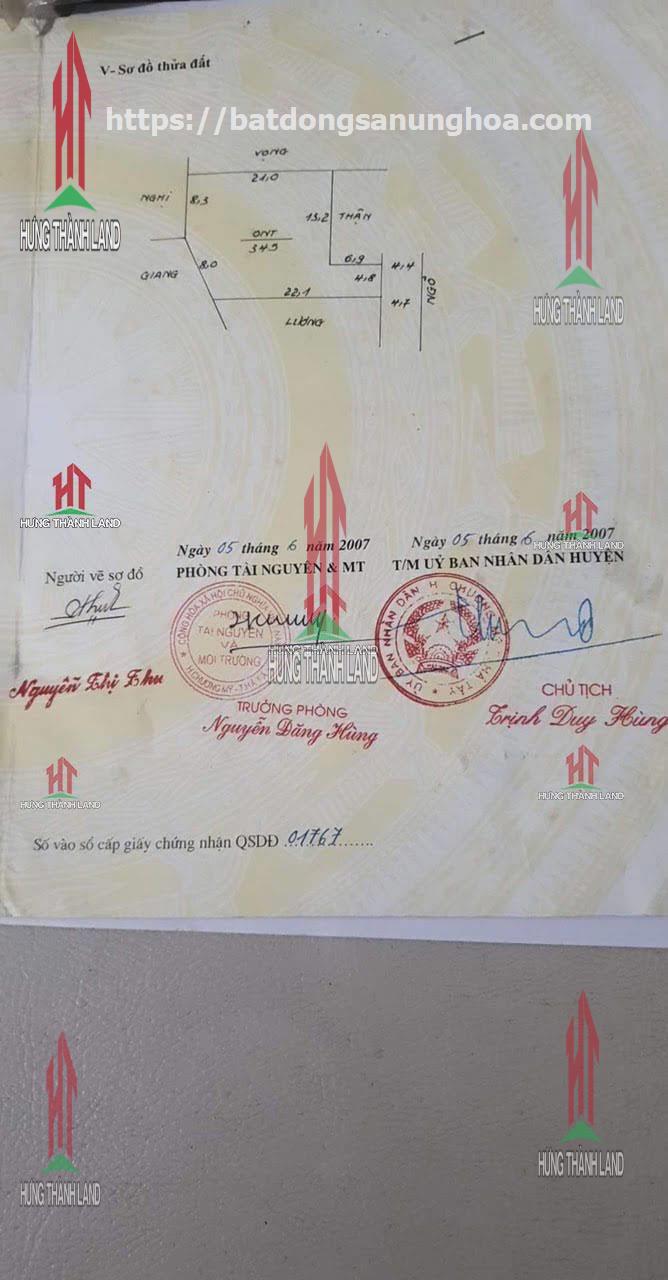 V- Sơ đồ thửa đất
https://batdongsanunghoa.com
HT
HƯNG THÀNH LAND
VỌNG
21,0
NGHỊ
8,3
13,2
THÂN
ONT
345
GIANG
8,0
6,9
4,8
4,4
NGÕ
22,1
4,7
LƯƠNG
HT
HƯNG THÀNH LAND
HT
HƯNG THÀNH LAND
HT
HƯNG THÀNH LAND
HT
HƯNG THÀNH LAND
Ngày 05 tháng 6 năm 2007
Ngày 05 tháng 6 năm 2007
Người vẽ sơ đồ
PHÒNG TÀI NGUYÊN & MT
T/M UỶ BAN NHÂN DÂN HUYỆN
CỘNG HÒA XÃ HỘI CHỦ NGHĨA
PHÒNG
TÀI NGUYÊN
VÀ
MÔI TRƯỜNG
H. CHƯƠNG MỸ - T. HÀ TÂY
UỶ BAN NHÂN DÂN H. CHƯƠNG
HÀ TÂY
Nguyễn Thị Thu
TRƯỞNG PHÒNG
Nguyễn Đăng Hùng
CHỦ TỊCH
Trịnh Duy Hùng
HT
HƯNG THÀNH LAND
HT
HƯNG THÀNH LAND
Số vào sổ cấp giấy chứng nhận QSDĐ .01767.......
HT
HƯNG THÀNH LAND
HT
HƯNG THÀNH LAND